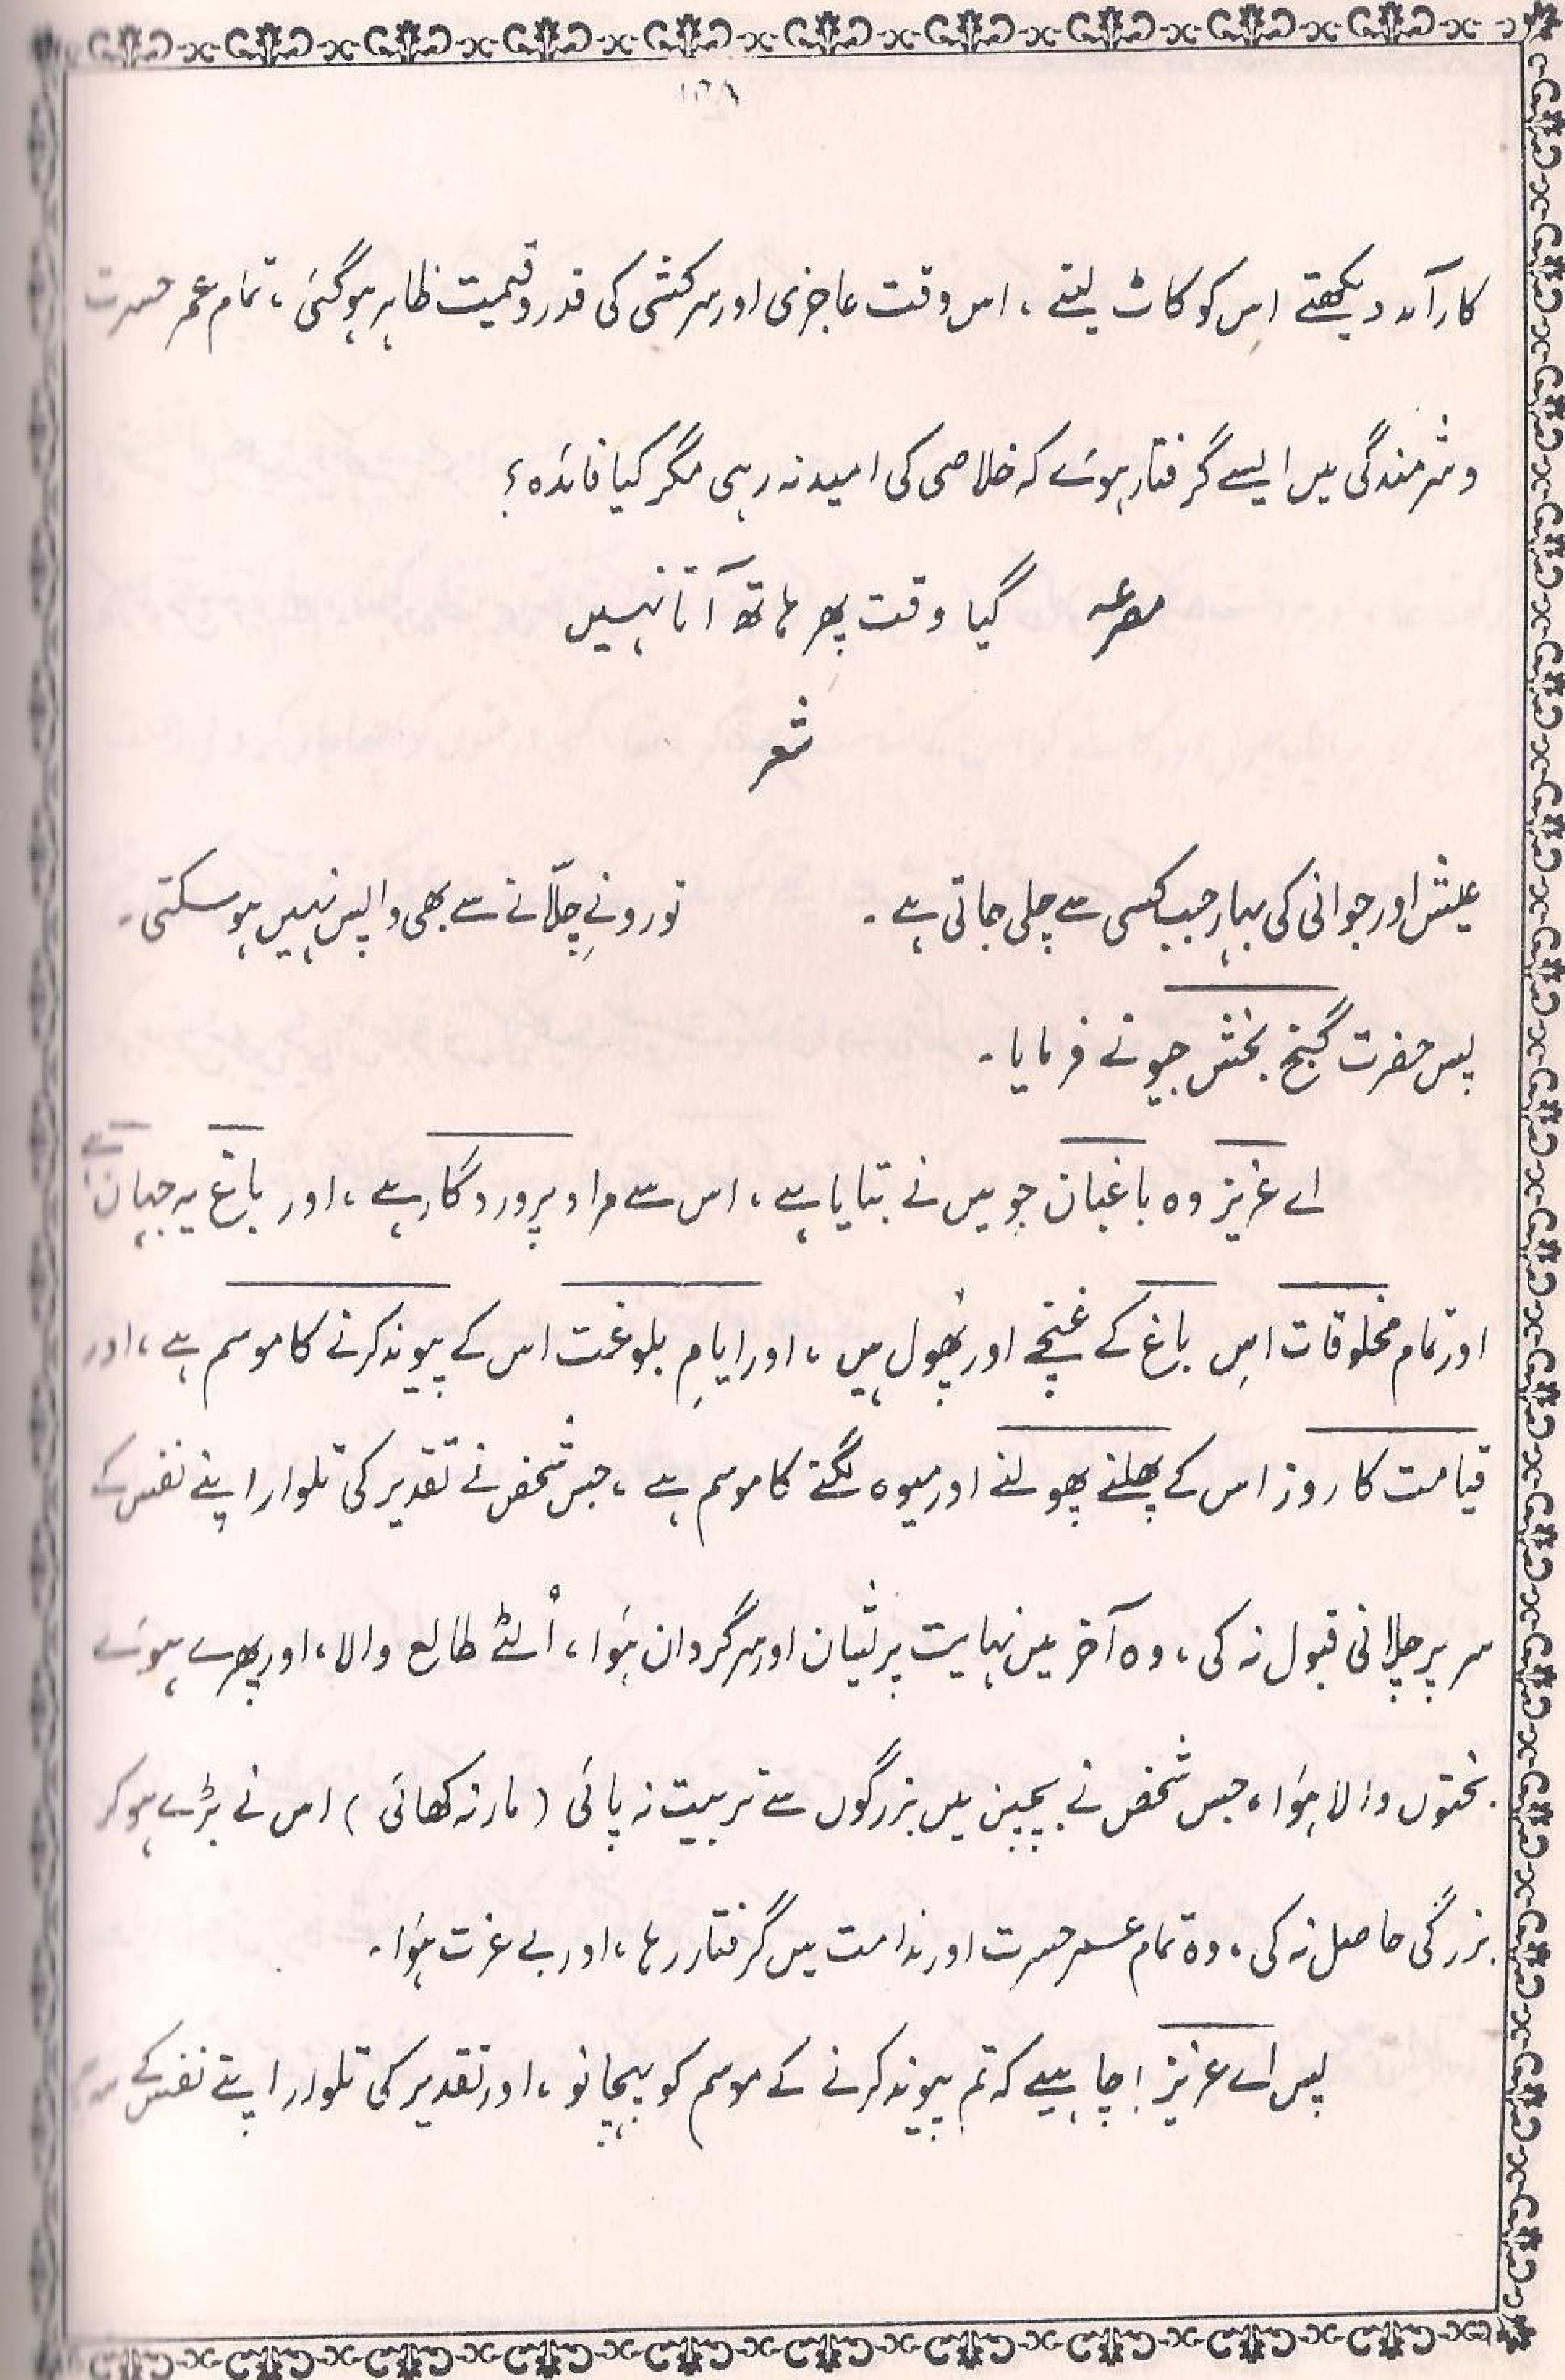 ۱۵۸
کارآمد دیکھتے اِس کو کاٹ لیتے ، اس وقت عاجزی اور سرکشی کی قدر و قیمت ظاہر ہوگئی ، تمام عمر حسرت
و شرمندگی میں ایسے گرفتار ہوئے کہ خلاصی کی امید نہ رہی مگر کیا فائدہ ؟
مصرعہ گیا وقت پھر ہاتھ آتا نہیں
شعر
عیش اور جوانی کی بہار جب کسی سے چلی جاتی ہے ۔ تو رونے چلّانے سے بھی واپس نہیں ہو سکتی ۔
پس حضرت گنج بخش جیو نے فرمایا ۔
اے عزیز وہ باغبان جو میں نے بتایا ہے ، اس سے مراد پروردگار ہے ، اور باغ یہ جہان ہے
اور تمام مخلوقات اِس باغ کے غنچے اور پھُول ہیں ، اور ایامِ بلوغت اس کے پیوند کرنے کا موسم ہے ، اور
قیامت کا روز اس کے پھلنے پھولنے اور میوہ لگنے کا موسم ہے ، جس شخص نے تقدیر کی تلوار اپنے نفس کے
سر پر چلانی قبول نہ کی ، وہ آخر میں نہایت پریشان اور سرگردان ہؤا ، اُلٹے طالع والا ، اور پھرے ہوئے
بختوں والا ہؤا ، جس شخص نے بچپن میں بزرگوں سے تربیت نہ پائی ( مار نہ کھائی ) اس نے بڑے ہو کر
بزرگی حاصل نہ کی ، وہ تمام عمر حسرت اور ندامت میں گرفتار رہا ، اور بے عزت ہؤا ۔
پس اے عزیز ! چاہیے کہ تم پیوند کرنے کے موسم کو پہچانو ، اور تقدیر کی تلوار اپنے نفس کے سر